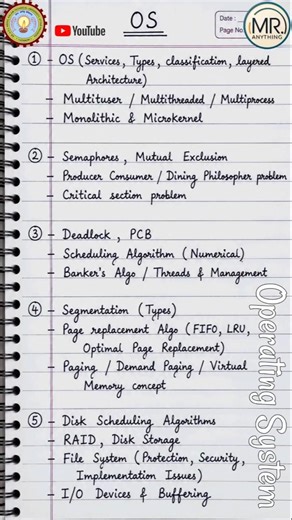 OS
YouTube
Date :
Page No
MR.
ANYTHING
① - OS (Services, Types, classification, layered
Architecture)
- Multituser / Multithreaded / Multiprocess
- Monolithic & Microkernel
② - Semaphores, Mutual Exclusion
- Producer Consumer / Dining Philosopher problem
- Critical section problem
③ - Deadlock, PCB
- Scheduling Algorithm (Numerical)
- Banker's Algo / Threads & Management
④ - Segmentation (Types)
- Page replacement Algo (FIFO, LRU,
Optimal Page Replacement)
- Paging / Demand Paging / Virtual
Memory concept
⑤ - Disk Scheduling Algorithms
- RAID, Disk Storage
- File System (Protection, Security,
Implementation Issues)
- I/O Devices & Buffering
Operating System